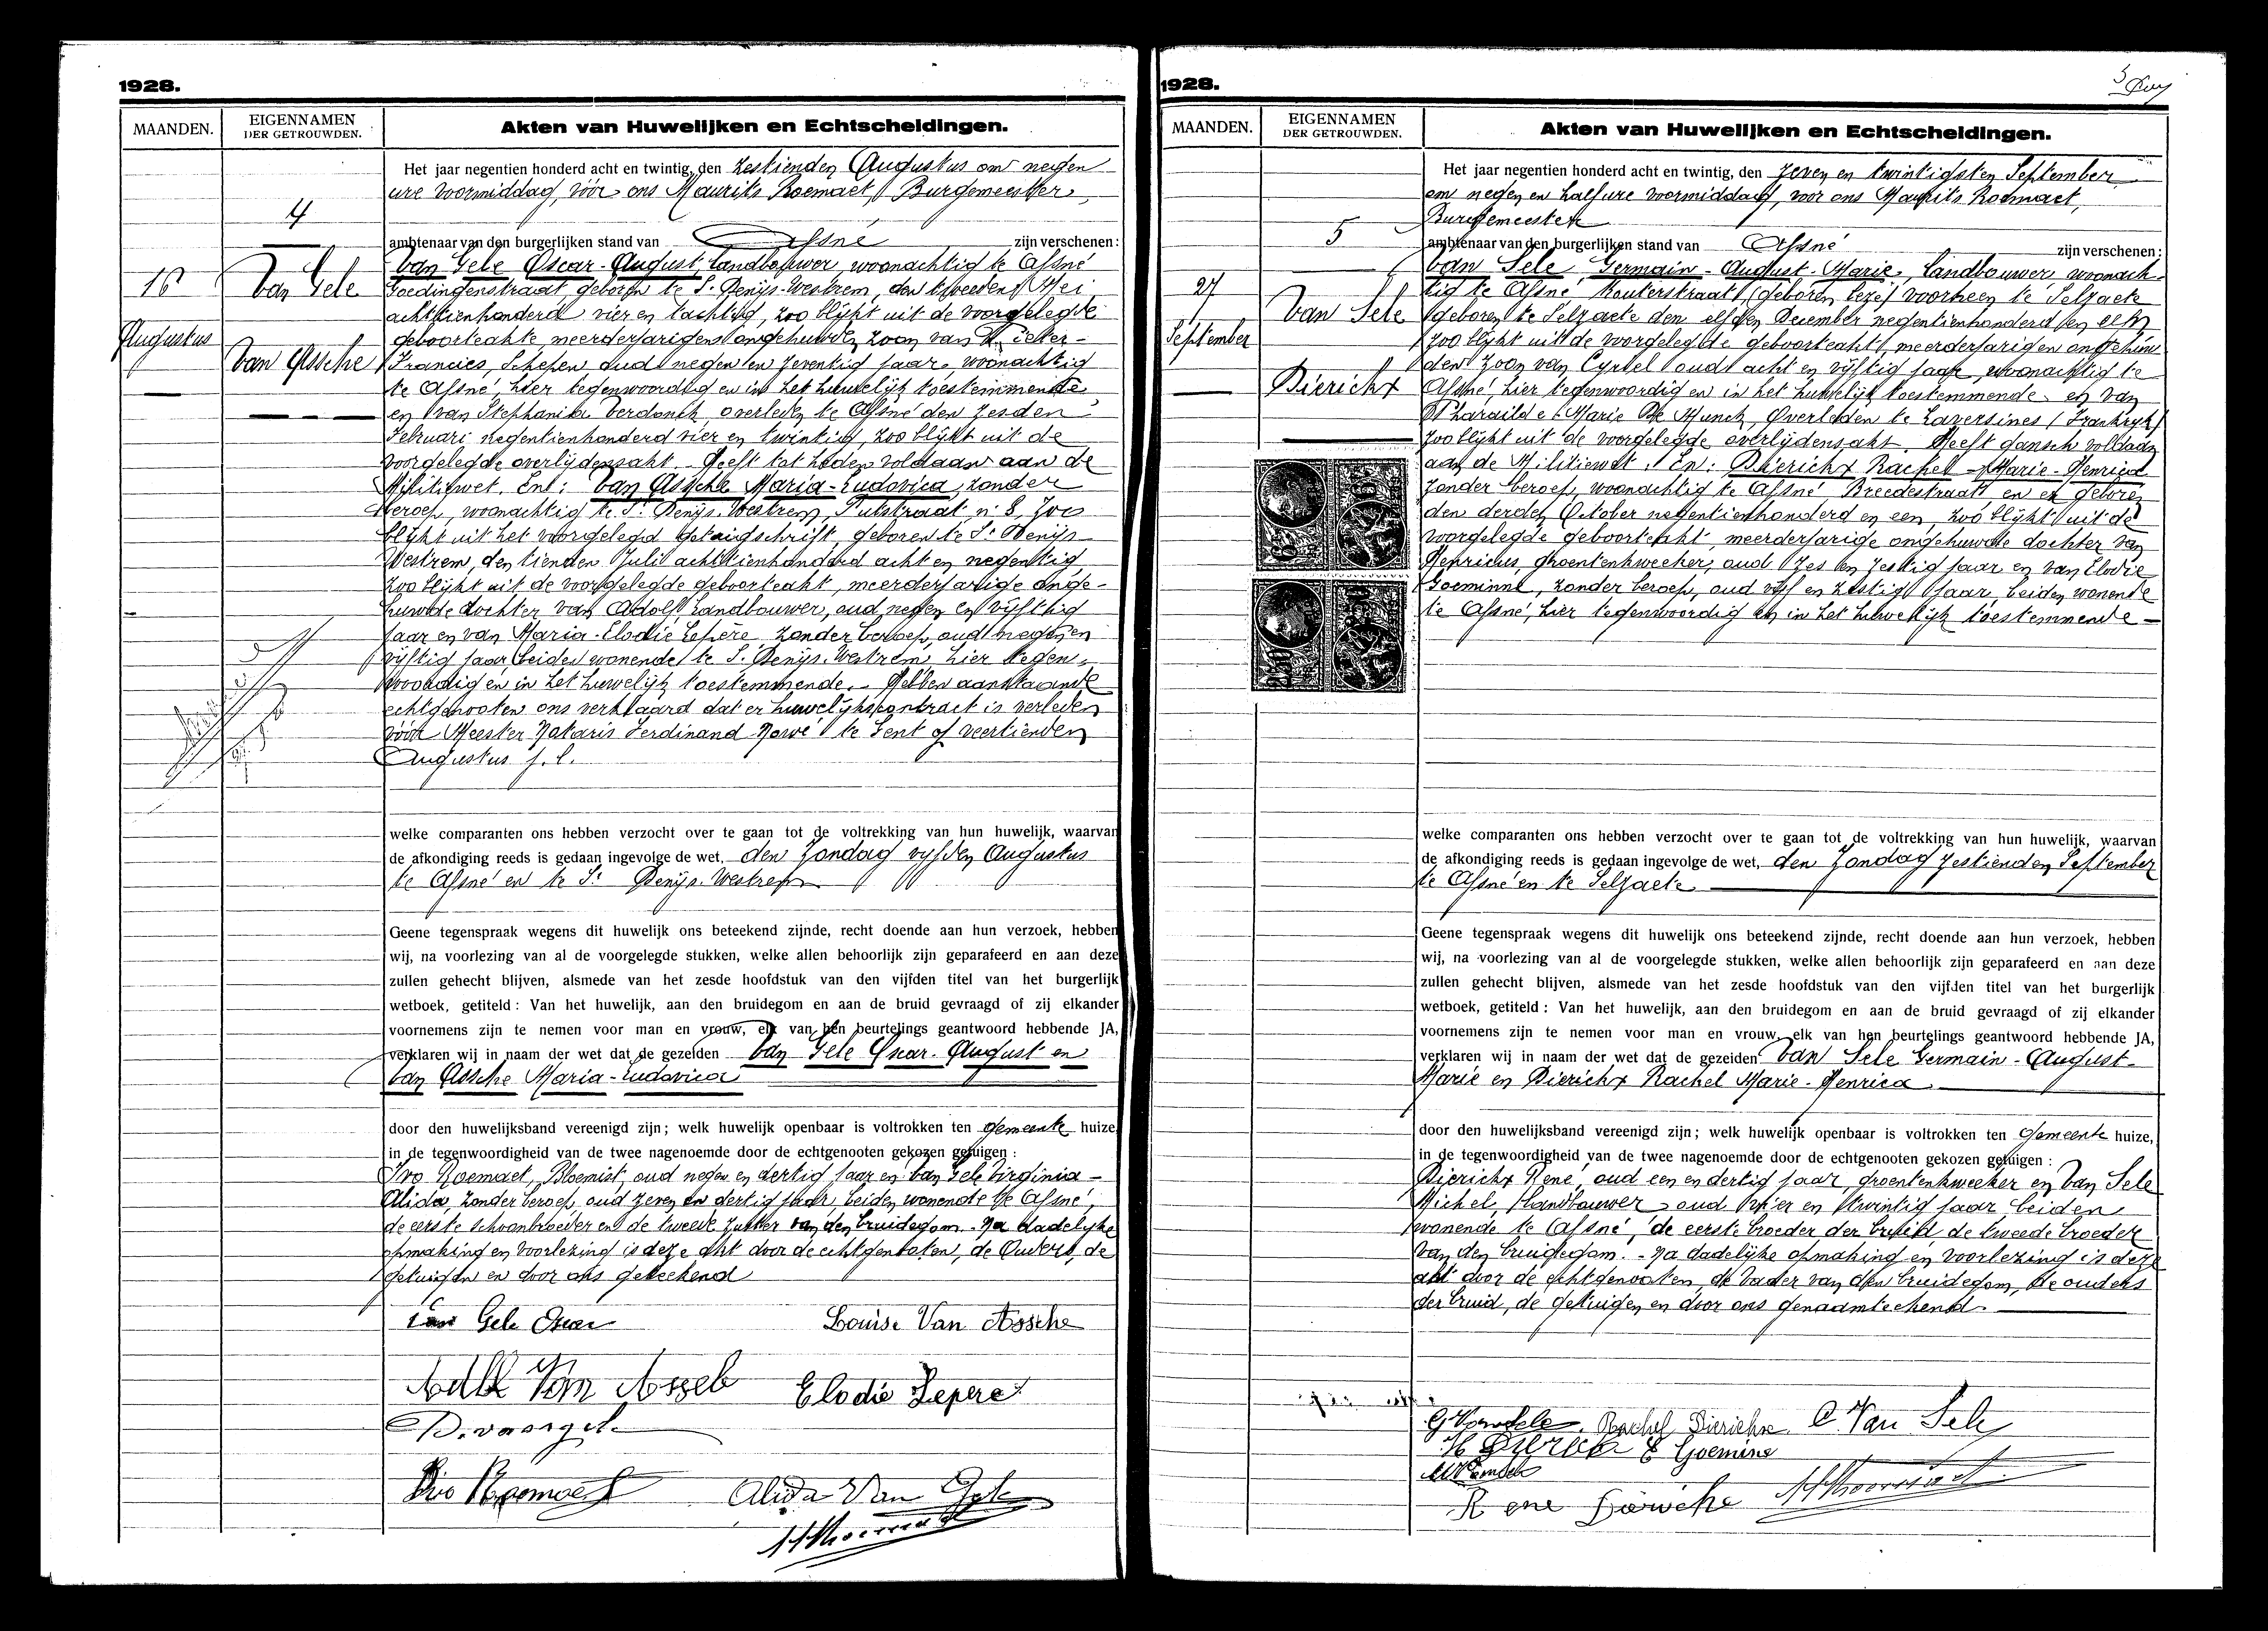 1928.
MAANDEN.
EIGENNAMEN
DER GETROUWDEN.
Akten van Huwelijken en Echtscheidingen.
4
16
Augustus
Van Gele
Van Assche
Het jaar negentien honderd acht en twintig, den zestienden Augustus om negen
ure voormiddag, vóór ons Maurits Roemaet, Burgemeester,
ambtenaar van den burgerlijken stand van Afsné zijn verschenen:
Van Gele Oscar-August, Landbouwer, woonachtig te Afsné
Goedingenstraat, geboren te St Denijs-Westrem, den tweeden Mei
achttienhonderd vier en tachtig, zoo blijkt uit de voorgelegde
geboorteakte meerderjarigen ongehuwden zoon van Pieter-
Francies, Schepen oud negen en zeventig jaar, woonachtig
te Afsné, hier tegenwoordig en in het huwelijk toestemmende
en van Stephanie Verdonck overleden te Afsné den zesden
Februari negentienhonderd vier en twintig, zoo blijkt uit de
voorgelegde overlijdensakt. Heeft tot heden voldaan aan de
Militiewet. En: Van Assche Maria-Ludovica, zonder
beroep, woonachtig te St Denijs-Westrem, Putstraat n. 8, zoo
blijkt uit het voorgelegd getuigschrift, geboren te St Denijs-
Westrem, den tienden Juli achttienhonderd acht en negentig,
zoo blijkt uit de voorgelegde geboorteakt, meerderjarige onge-
huwde dochter van Adolf, Landbouwer, oud negen en vijftig
jaar en van Maria-Elodie Lepère zonder beroep, oud negen en
vijftig jaar, beiden wonende te St Denijs-Westrem, hier tegen-
woordig en in het huwelijk toestemmende. Hebben aanstaande
echtgenooten ons verklaard dat er huwelijkscontract is verleden
vóór Meester Notaris Ferdinand te Gent op veertienden
Augustus j. l.
welke comparanten ons hebben verzocht over te gaan tot de voltrekking van hun huwelijk, waarvan
de afkondiging reeds is gedaan ingevolge de wet, den Zondag vijfden Augustus
te Afsné en te St Denijs-Westrem
Geene tegenspraak wegens dit huwelijk ons beteekend zijnde, recht doende aan hun verzoek, hebben
wij, na voorlezing van al de voorgelegde stukken, welke allen behoorlijk zijn geparafeerd en aan deze
zullen gehecht blijven, alsmede van het zesde hoofdstuk van den vijfden titel van het burgerlijk
wetboek, getiteld: Van het huwelijk, aan den bruidegom en aan de bruid gevraagd of zij elkander
voornemens zijn te nemen voor man en vrouw, elk van hen beurtelings geantwoord hebbende JA,
verklaren wij in naam der wet dat de gezeiden Van Gele Oscar-August en
Van Assche Maria-Ludovica
door den huwelijksband vereenigd zijn; welk huwelijk openbaar is voltrokken ten Gemeente huize,
in de tegenwoordigheid van de twee nagenoemde door de echtgenooten gekozen getuigen:
Ivo Roemaet, Bloemist, oud negen en dertig jaar en Van Gele Virginia-
Alida, zonder beroep, oud zeven en dertig jaar, beiden wonende te Afsné,
de eerste schoonbroeder en de tweede zuster van den bruidegom. Na dadelijke
opmaking en voorlezing is deze akt door de echtgenooten, de Ouders, de
getuigen en door ons geteekend
Van Gele Oscar
Louise Van Assche
Elodie Lepere
Ivo Roemaet
Alida Van Gele
1928.
MAANDEN.
EIGENNAMEN
DER GETROUWDEN.
Akten van Huwelijken en Echtscheidingen.
5
27
September
Van Sele
Dierickx
Het jaar negentien honderd acht en twintig, den zeven en twintigsten September
om negen en half ure voormiddag, voor ons Maurits Roemaet,
Burgemeester
ambtenaar van den burgerlijken stand van Afsné zijn verschenen:
Van Sele Germain-August-Marie, Landbouwer, woonach-
tig te Afsné Kouterstraat, voorheen te Selzaete
geboren te Selzaete den elfden December negentienhonderd en een
zoo blijkt uit de voorgelegde geboorteakt, meerderjarigen ongehuw-
den zoon van Cyriel oud acht en vijftig jaar, woonachtig te
Afsné, hier tegenwoordig en in het huwelijk toestemmende en van
Pharailde Marie De Munck, overleden te Laversines (Frankrijk)
zoo blijkt uit de voorgelegde overlijdensakt. Heeft gansch voldaan
aan de Militiewet. En: Dierickx Rachel-Marie-Henrica
zonder beroep, woonachtig te Afsné, Breedestraat en er geboren
den derden October negentienhonderd en een, zoo blijkt uit de
voorgelegde geboorteakt, meerderjarige ongehuwde dochter van
Henricus, groentenkweeker, oud zes en zestig jaar en van Elodie
Goeminne, zonder beroep, oud vijf en zestig jaar, beiden wonende
te Afsné, hier tegenwoordig en in het huwelijk toestemmende
welke comparanten ons hebben verzocht over te gaan tot de voltrekking van hun huwelijk, waarvan
de afkondiging reeds is gedaan ingevolge de wet, den Zondag zestienden September
te Afsné en te Selzaete
Geene tegenspraak wegens dit huwelijk ons beteekend zijnde, recht doende aan hun verzoek, hebben
wij, na voorlezing van al de voorgelegde stukken, welke allen behoorlijk zijn geparafeerd en aan deze
zullen gehecht blijven, alsmede van het zesde hoofdstuk van den vijfden titel van het burgerlijk
wetboek, getiteld: Van het huwelijk, aan den bruidegom en aan de bruid gevraagd of zij elkander
voornemens zijn te nemen voor man en vrouw, elk van hen beurtelings geantwoord hebbende JA,
verklaren wij in naam der wet dat de gezeiden Van Sele Germain-August-
Marie en Dierickx Rachel Marie-Henrica
door den huwelijksband vereenigd zijn; welk huwelijk openbaar is voltrokken ten Gemeente huize,
in de tegenwoordigheid van de twee nagenoemde door de echtgenooten gekozen getuigen:
Dierickx René, oud een en dertig jaar, groentenkweeker en Van Sele
Michel, Landbouwer oud vier en twintig jaar beiden
wonende te Afsné, de eerste broeder der bruid, de tweede broeder
van den bruidegom. - Na dadelijke opmaking en voorlezing is deze
akt door de echtgenooten, de vader van den bruidegom, de ouders
der bruid, de getuigen en door ons genaamteekend.
G Van Sele Rachel Dierickx C. Van Sele
E Goemine